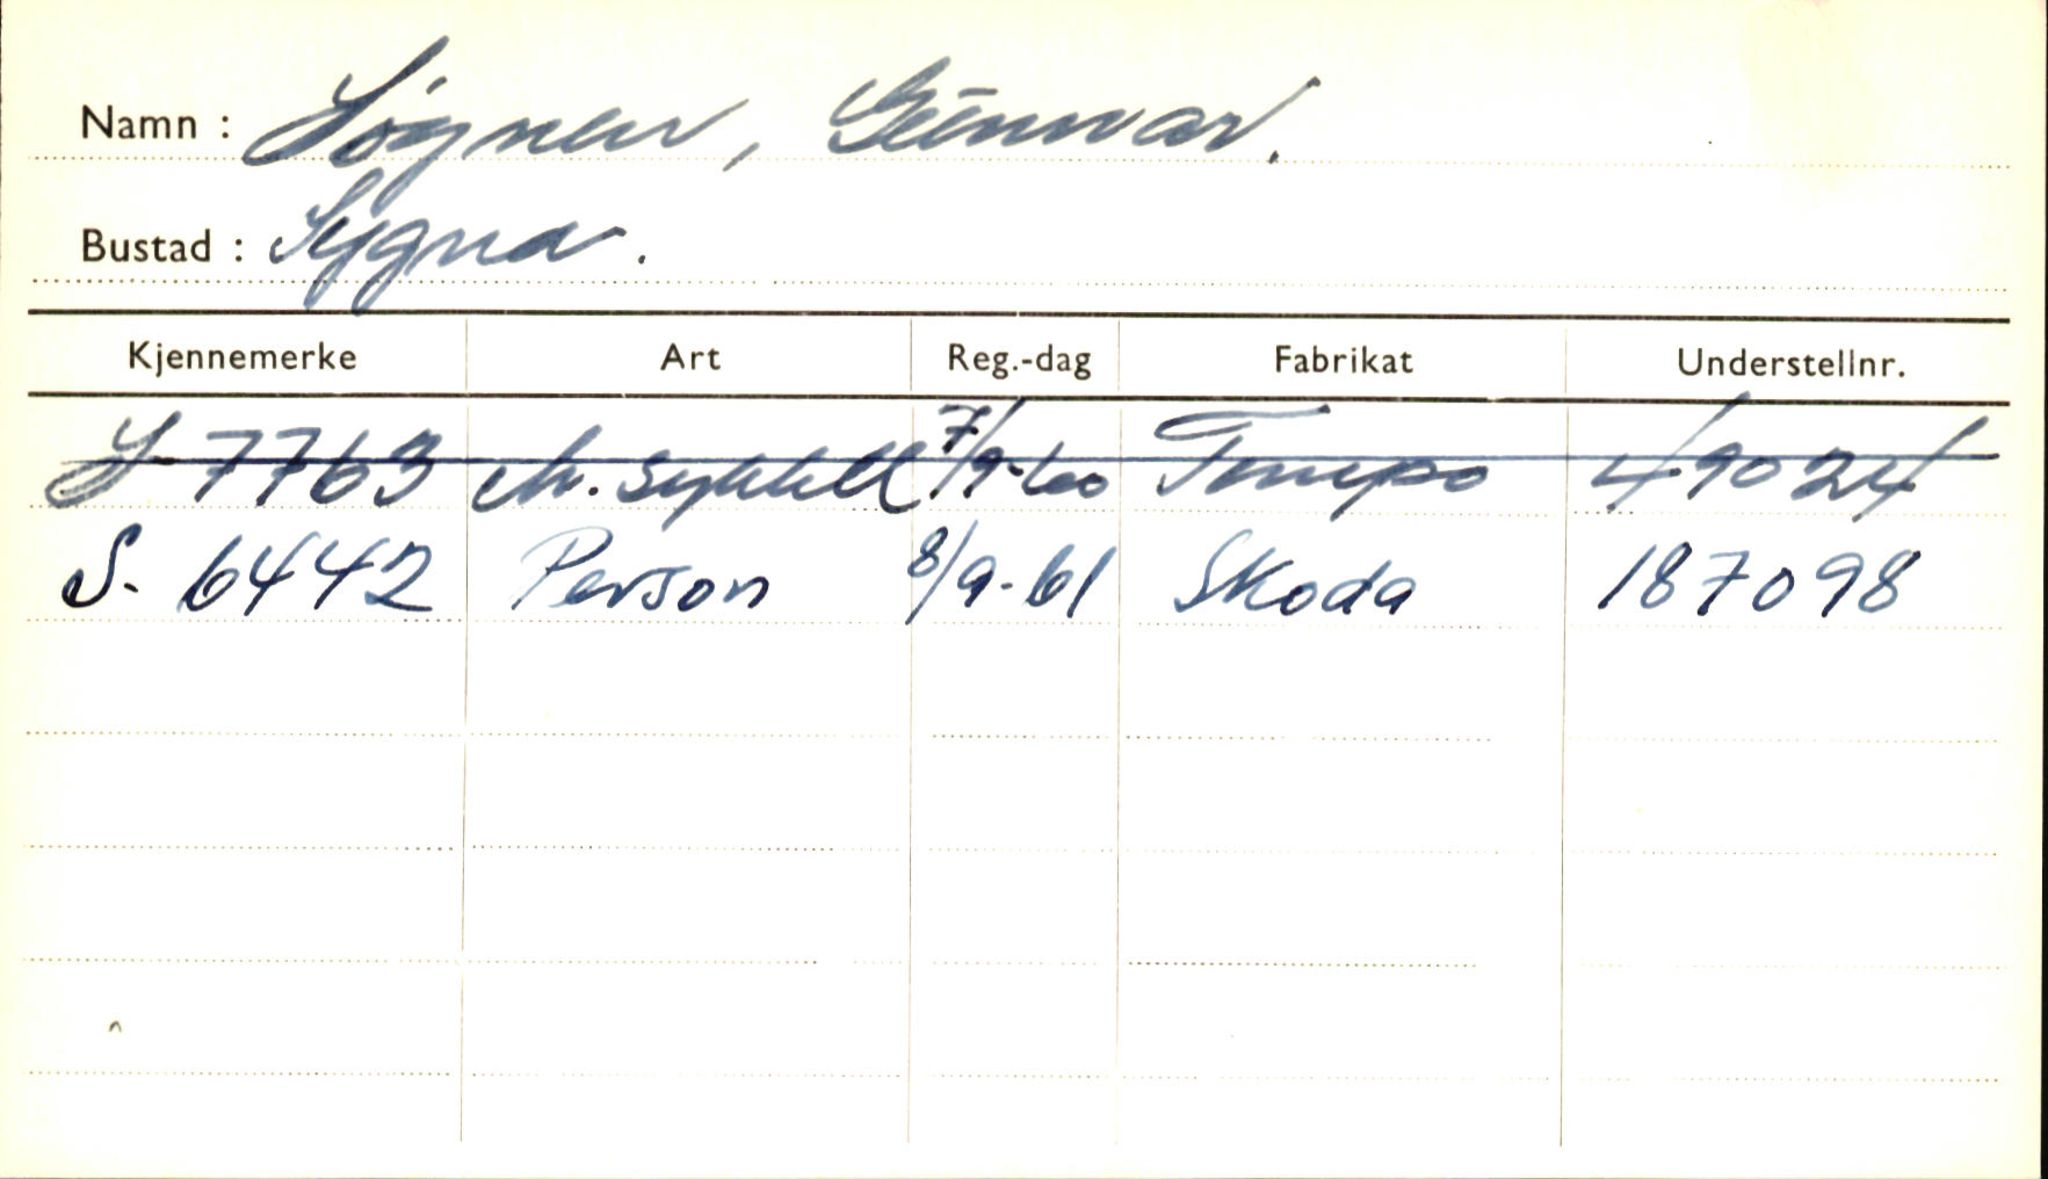 Namn : Søgnen, Gunnvar.
Bustad : Sygna.
Kjennemerke Art Reg.-dag Fabrikat Understellnr.
S 7763 M. sykkell 7/9-60 Tempo 49024
S. 6442 Person 8/9-61 Skoda 187098